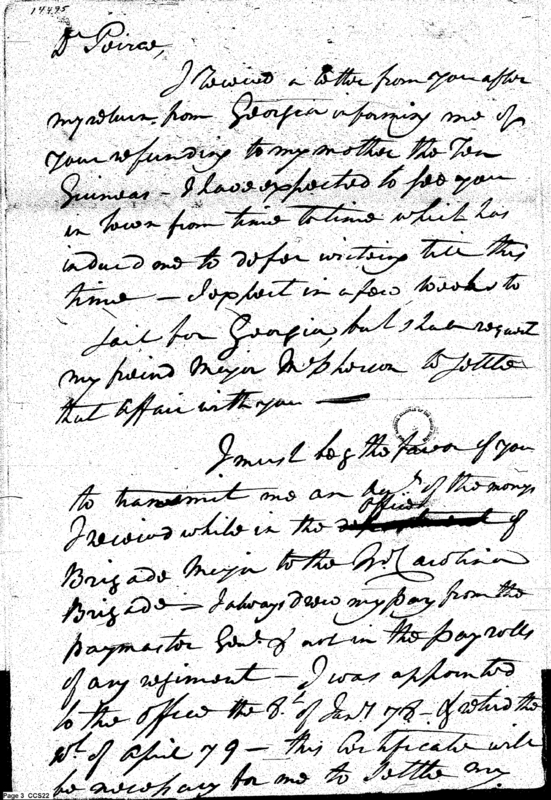 14495
Dr Peirce,
I received a letter from you after
my return from Georgia informing me of
your refunding to my mother the Ten
Guineas – I have expected to see you
in town from time to time which has
induced me to defer writing till this
time – I expect in a few weeks to
sail for Georgia, but shall request
my freind Major McPherson to settle
that affair with you —
I must beg the favor of you
to transmit me an of the monys
office
I received while in the department of
Brigade Major to the No Carolina
Brigade – I always drew my pay from the
paymaster Genl. & not in the payrolls
of any regiment – I was appointed
to the office the 8th of Jany 78 – & retird the
of April 79 – this Certificate will
be necessary for me to settle my
Page 3 CCS22